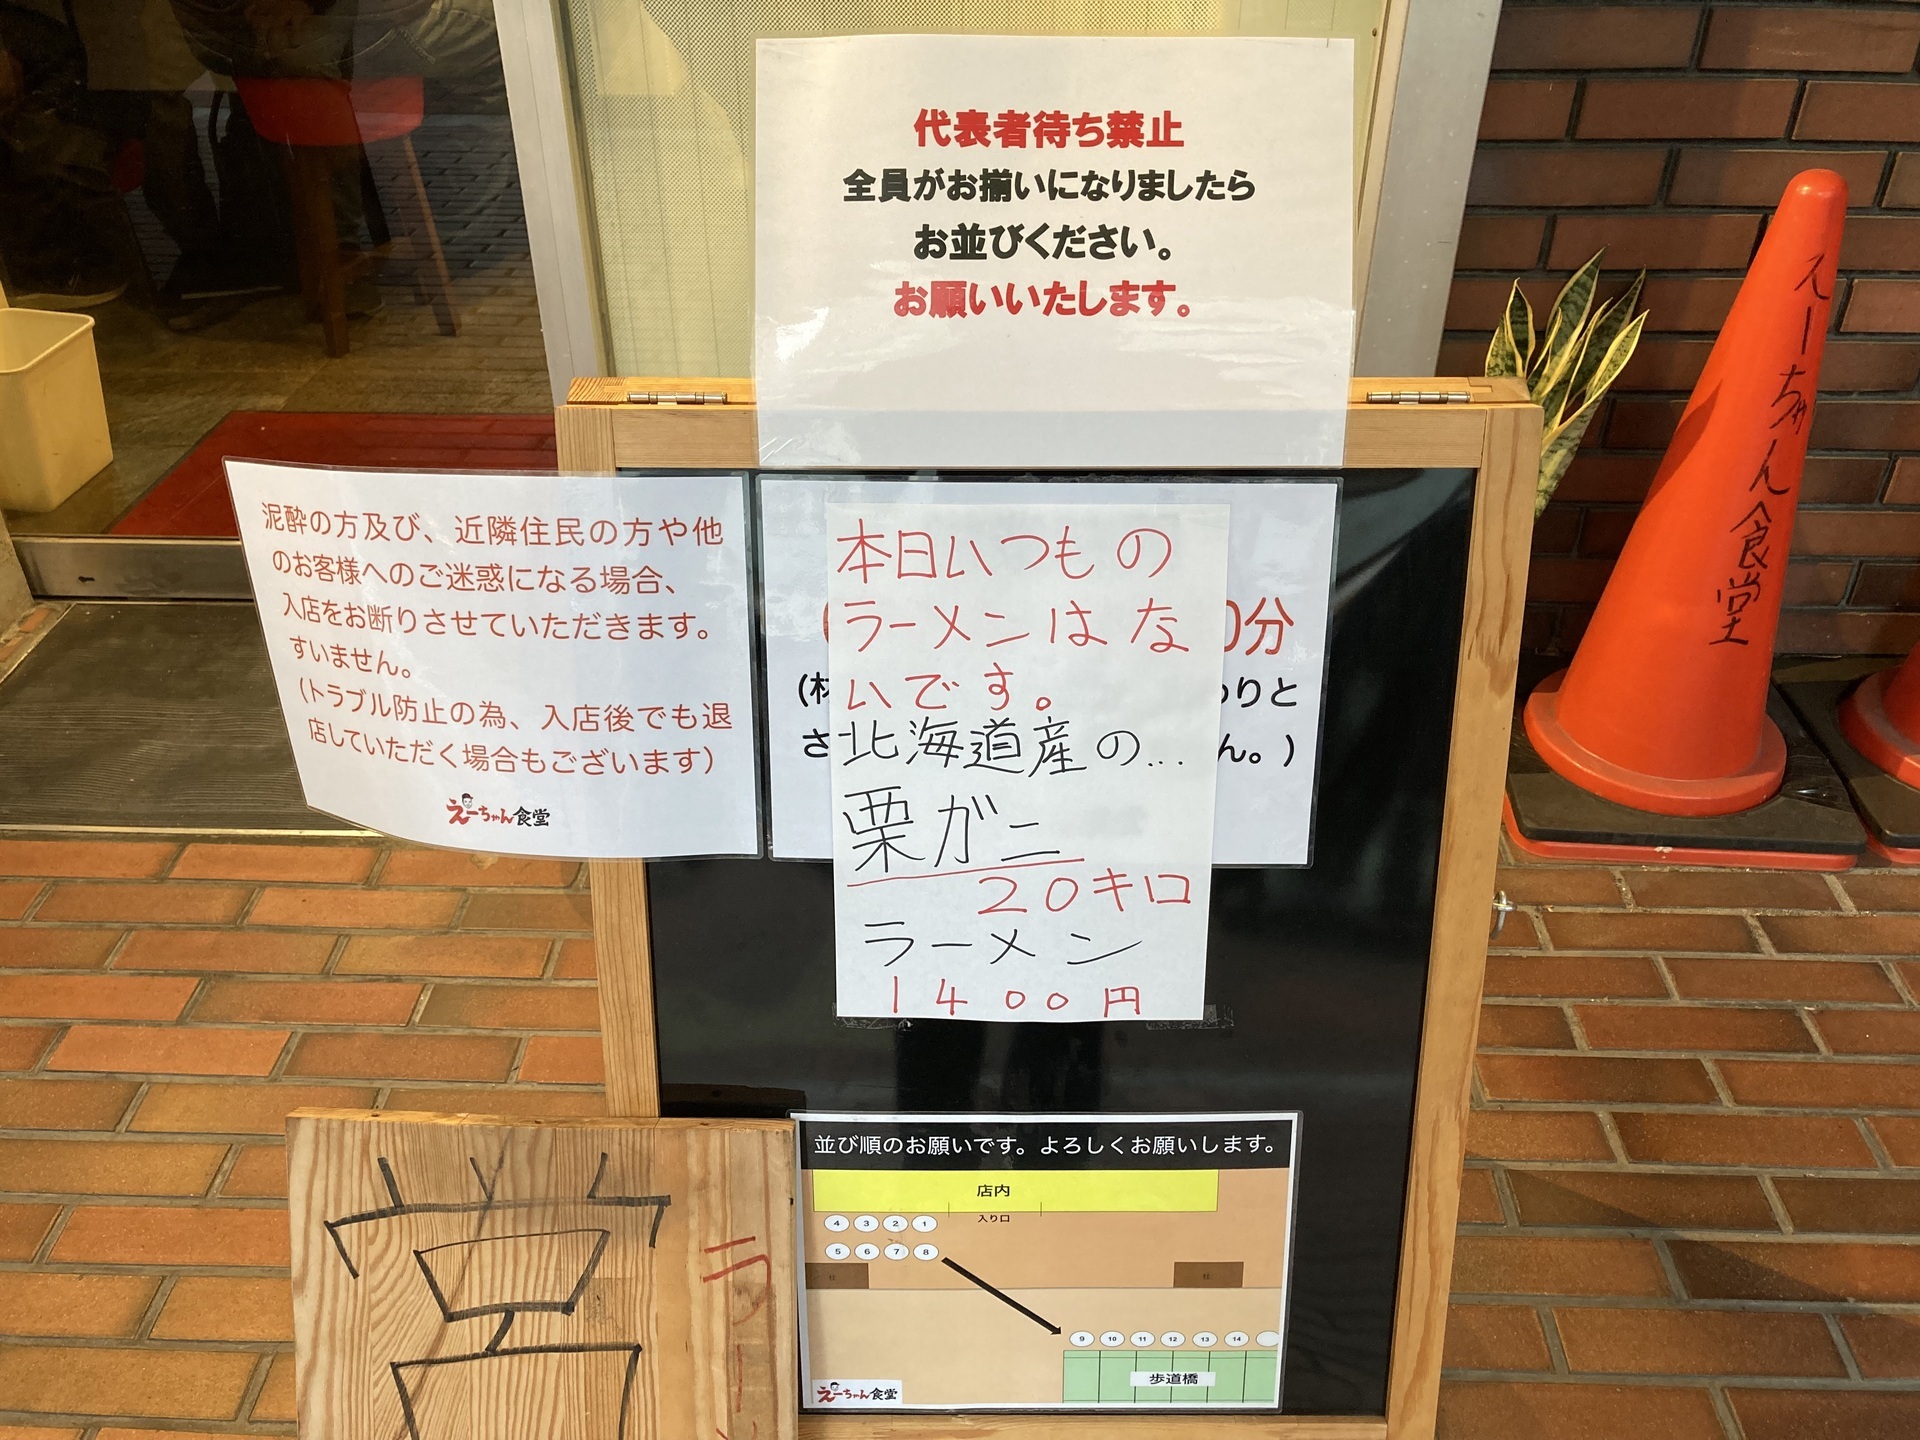 代表者待ち禁止
全員がお揃いになりましたら
お並びください。
お願いいたします。
泥酔の方及び、近隣住民の方や他
のお客様へのご迷惑になる場合、
入店をお断りさせていただきます。
すいません。
(トラブル防止の為、入店後でも退
店していただく場合もございます)
えーちゃん食堂
0分
りと
ん。)
さ
本日いつもの
ラーメンはな
いです。
北海道産の…
栗ガニ
20キロ
ラーメン
1400円
えーちゃん食堂
並び順のお願いです。よろしくお願いします。
店内
入り口
4 3 2 1
5 6 7 8
柱 柱
9 10 11 12 13 14
歩道橋
えーちゃん食堂
堂
ラー